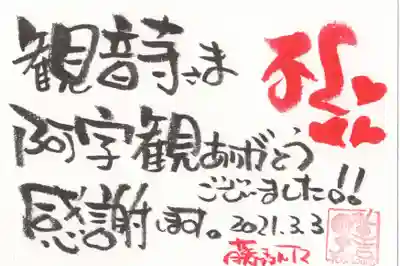 観音寺さま
阿字観ありがとう
ございました!!
感謝します。2021.3.3